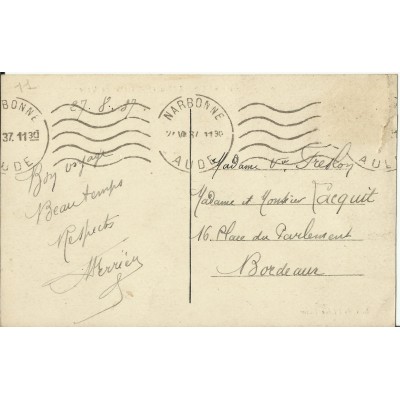 11
27.8.37.
NARBONNE
37 11 30
AUDE
Bon voyage
Beau temps
Respects
NARBONNE
VIII 37 11 30
AUDE
AU
Madame Vve
Madame et Monsieur Jacquit
16. Place du Parlement
Bordeaux